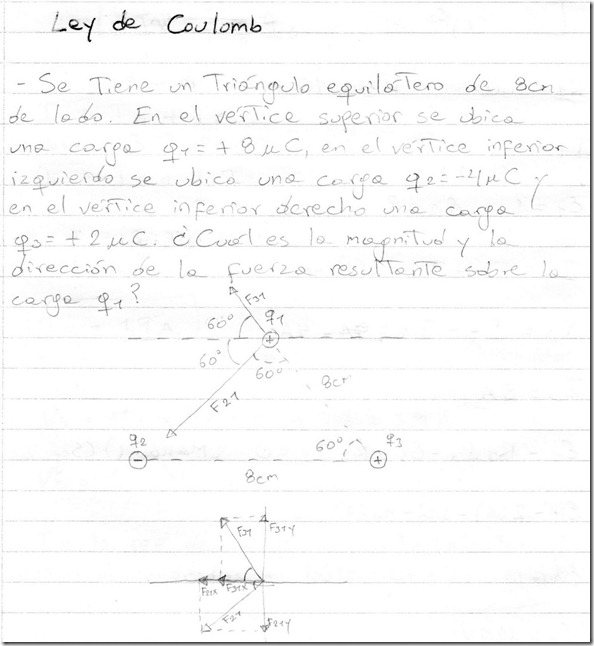 Ley de Coulomb
- Se Tiene un Triángulo equilátero de 8cm
de lado. En el vértice superior se ubica
una carga q1 = + 8 μC, en el vértice inferior
izquierdo se ubica una carga q2 = -4 μC y
en el vértice inferior derecho una carga
q3 = + 2 μC. ¿Cual es la magnitud y la
dirección de la fuerza resultante sobre la
carga q1?
F31
60° q1
+
60° 60°
8cm
F21
q2 60° q3
- +
8cm
F31 F31y
F21x F31x
F21 F21y